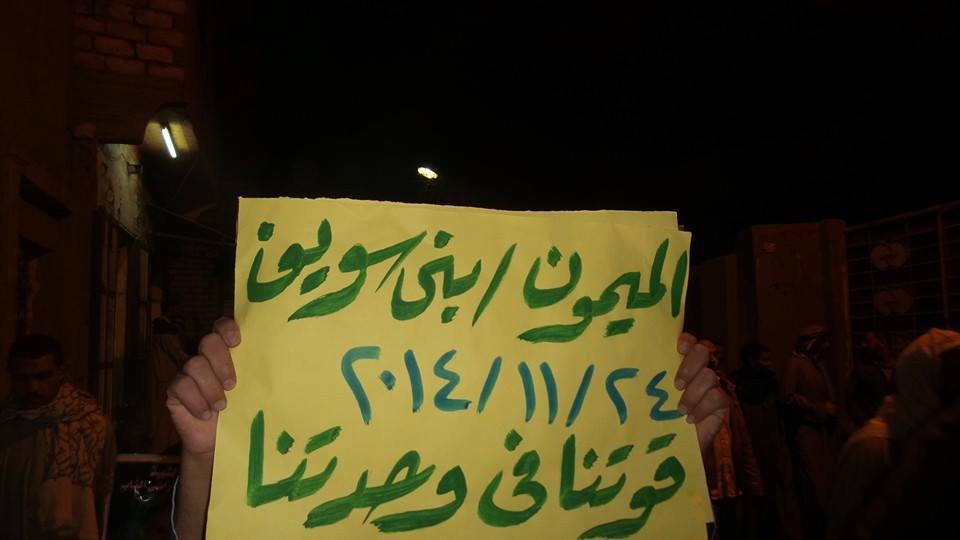 الميمون / بنى سويف
٢٤/١١/٢٠١٤
قوتنا فى وحدتنا